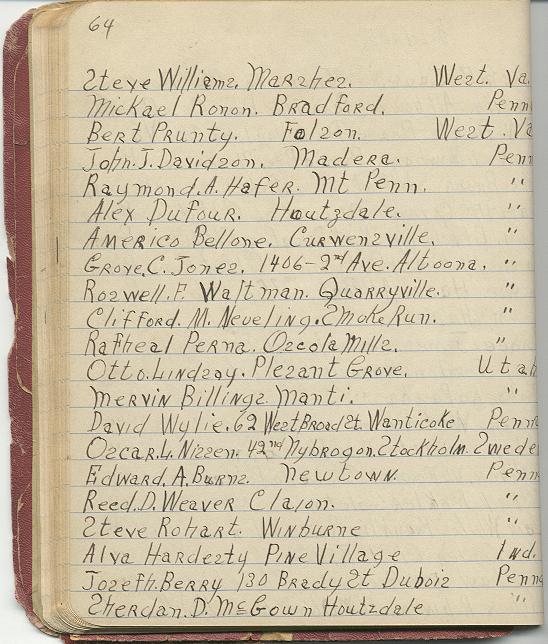 64
Steve Williams. Marshes. West. Va.
Mickael Ronon. Bradford. Penn
Bert Prunty. Folson. West. Va
John. J. Davidson. Madera. Penn
Raymond. A. Hafer. Mt Penn. "
Alex Dufour. Houtzdale. "
Americo Bellone. Curwensville. "
Grove. C. Jones. 1406-2nd Ave. Altoona. "
Roswell. F. Waltman. Quarryville. "
Clifford. M. Neveling. Smoke Run. "
Rafheal Perna. Oscola Mills. "
Otto. Lindsay. Plesant Grove. Utah
Mervin Billings. Manti. "
David Wylie. 62 West Broad St. Wanticoke Penn
Oscar. L. Nissen. 42nd Nybrogon. Stockholm. Swede
Edward. A. Burns. Newtown. Penn
Reed. D. Weaver Claion. "
Steve Rohart. Winburne "
Alva Hardesty Pine Village Ind.
Joseth. Berry 130 Brady St Dubois Penn
Sherdan. D. McGown Houtzdale "